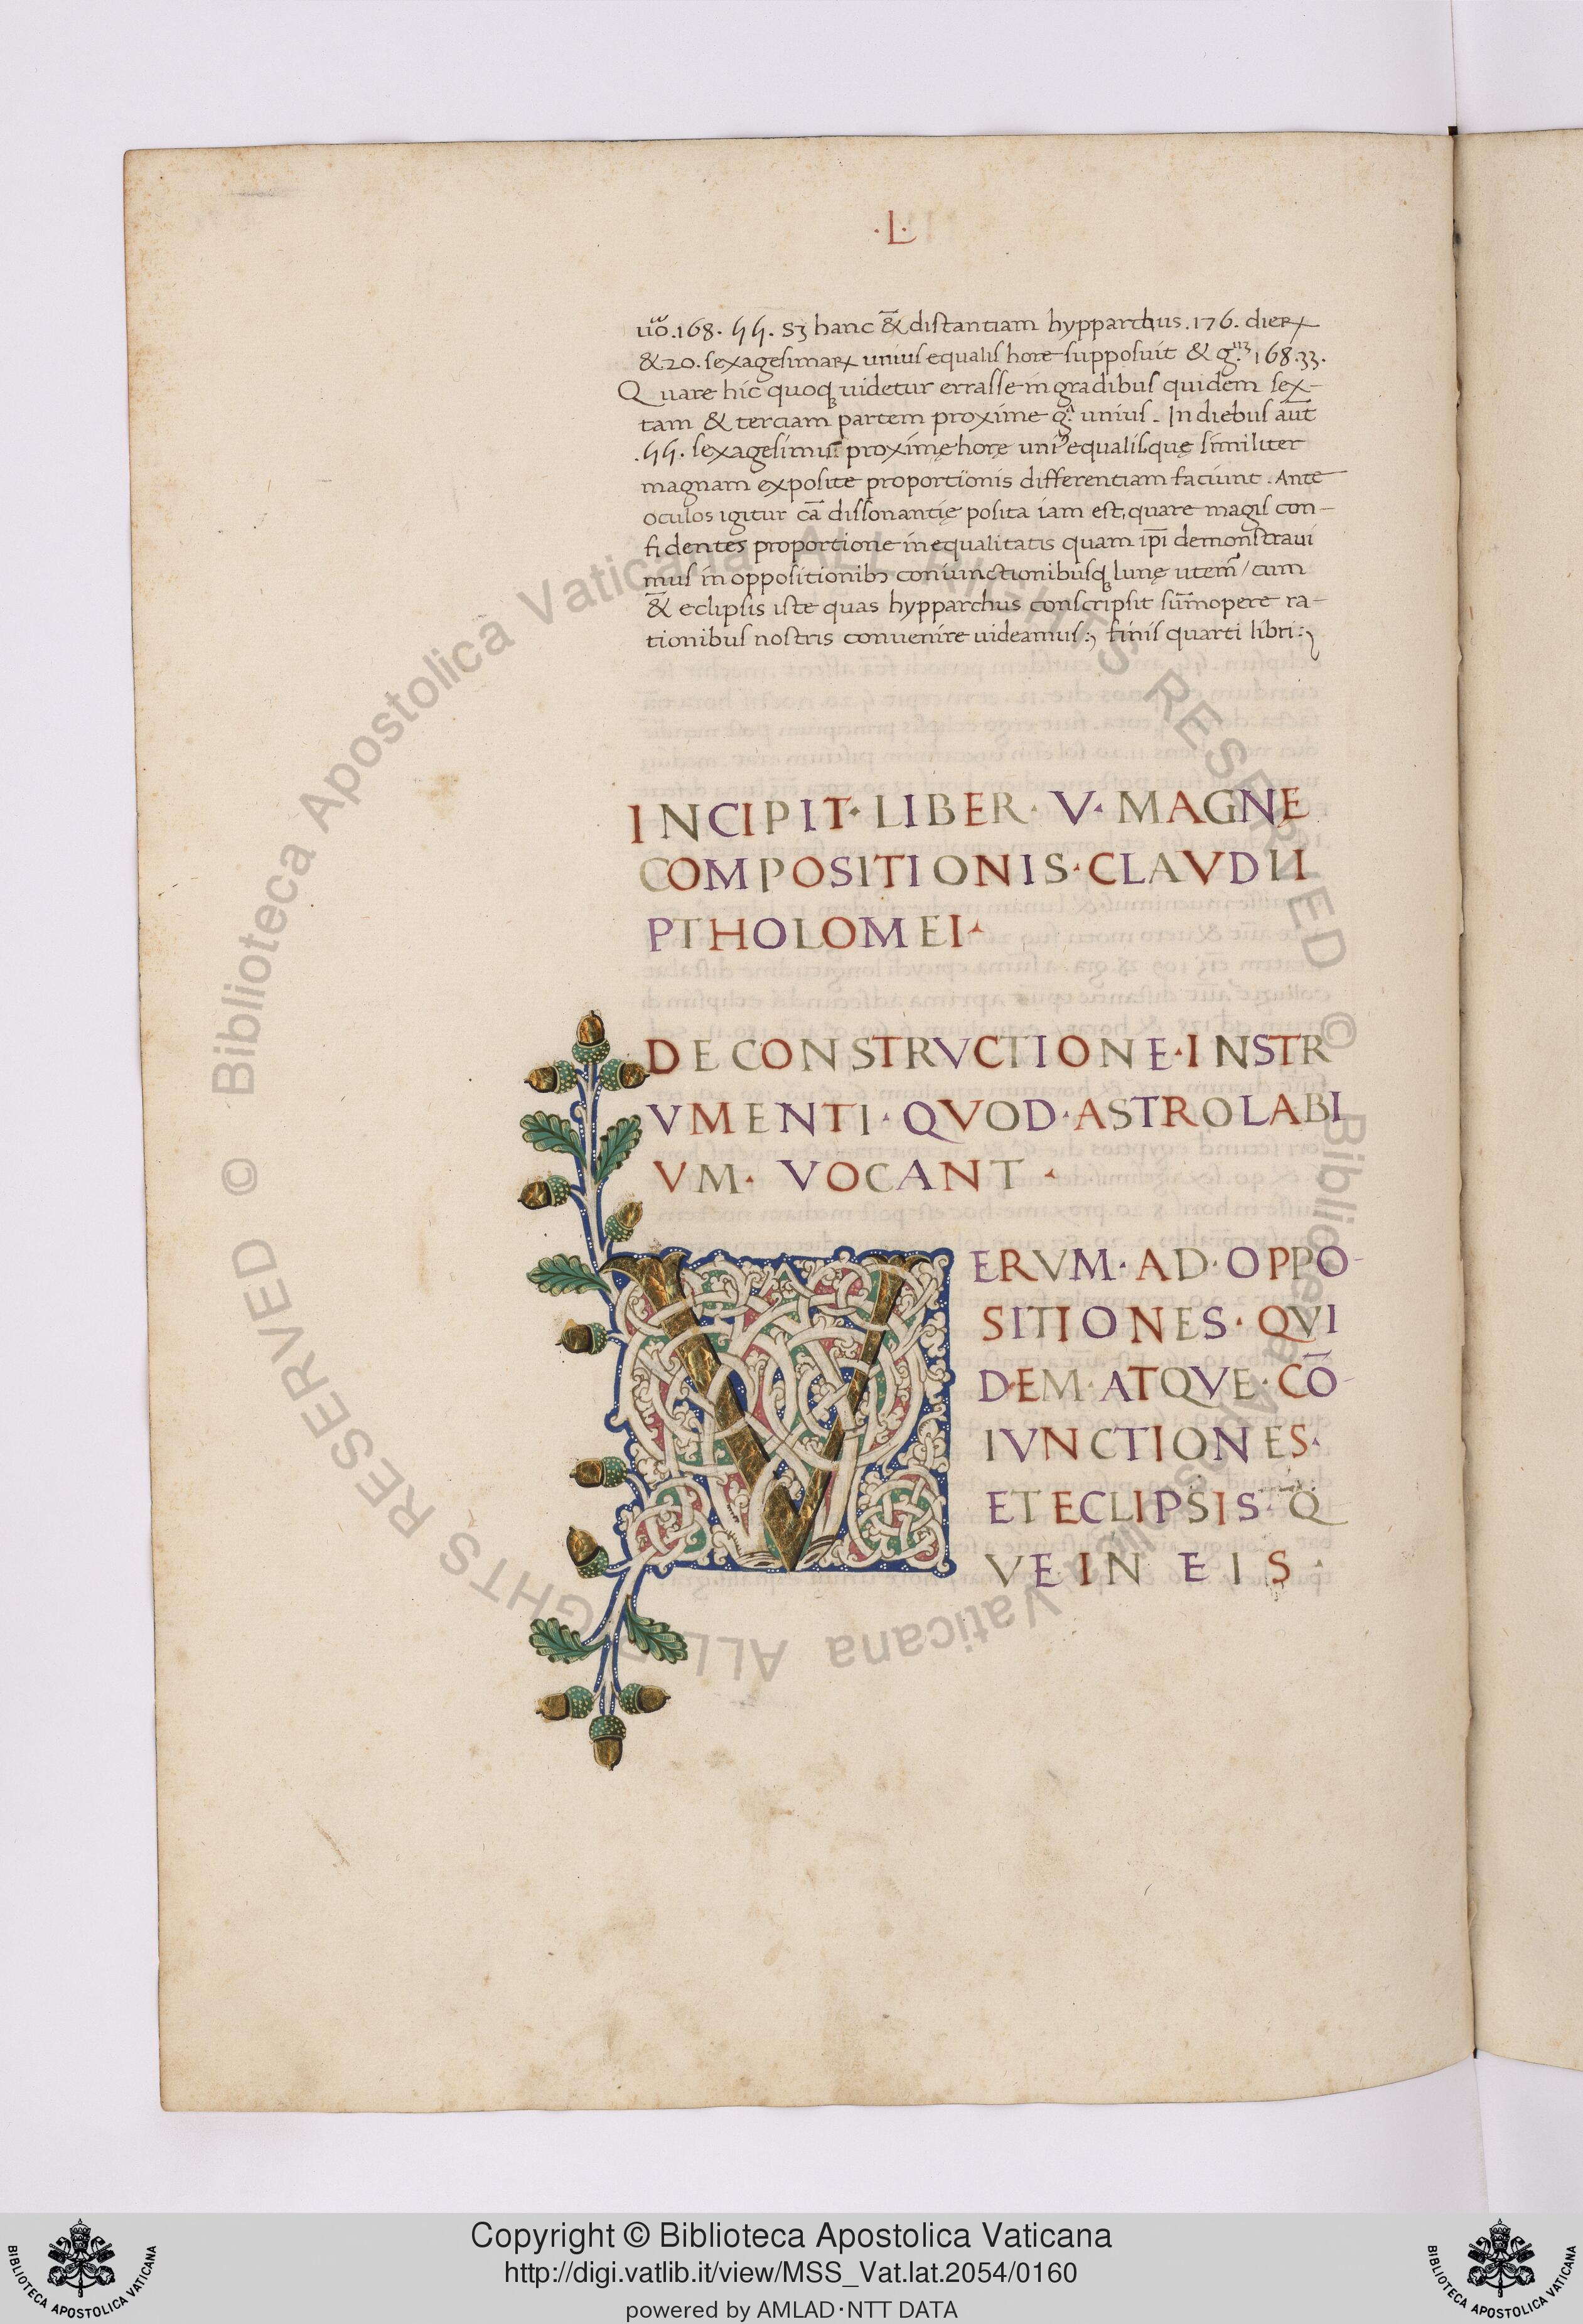 ·L·
uͦo.168. 55. sꝫ hanc & distantiam hypparchus.176. dierꝝ
&20. sexagesimarꝝ unius equalis hore supposuit & g. 168.33.
Quare hic quoqꝫ uidetur errasse in gradibus quidem sex-
tam & terciam partem proxime gͣ. unius. In diebus aūt
.55. sexagesimis proximę horę uniꝰ equalis, quę similiter
magnam exposite proportionis differentiam faciunt. Ante
oculos igitur cā dissonantię posita iam est, quare magis con-
fidentes proportione inequalitatis quam ip̄i demonstraui
mus in oppositionibꝫ coniunctionibusqꝫ lunę utem̄/ cum
& eclipsis iste quas hypparchus conscripsit sūmopere ra-
tionibus nostris convenire uideamus:, finis quarti libri:,
INCIPIT· LIBER· V· MAGNE
COMPOSITIONIS·CLAVDII
PTHOLOMEI·
DE CONSTRVCTIONE·INSTR
VMENTI·QVOD·ASTROLABI
VM· VOCANT·
VERVM·AD·OPPO-
SITIONES·QVI
DEM·ATQVE·CŌ-
IVNCTIONES·
ET ECLIPSIS·Q
VE IN EIS·
© Biblioteca Apostolica Vaticana ALL RIGHTS RESERVED © Biblioteca Apostolica Vaticana ALL RIGHTS RESERVED
Copyright © Biblioteca Apostolica Vaticana
http://digi.vatlib.it/view/MSS_Vat.lat.2054/0160
powered by AMLAD·NTT DATA
BIBLIOTECA APOSTOLICA VATICANA
BIBLIOTECA APOSTOLICA VATICANA